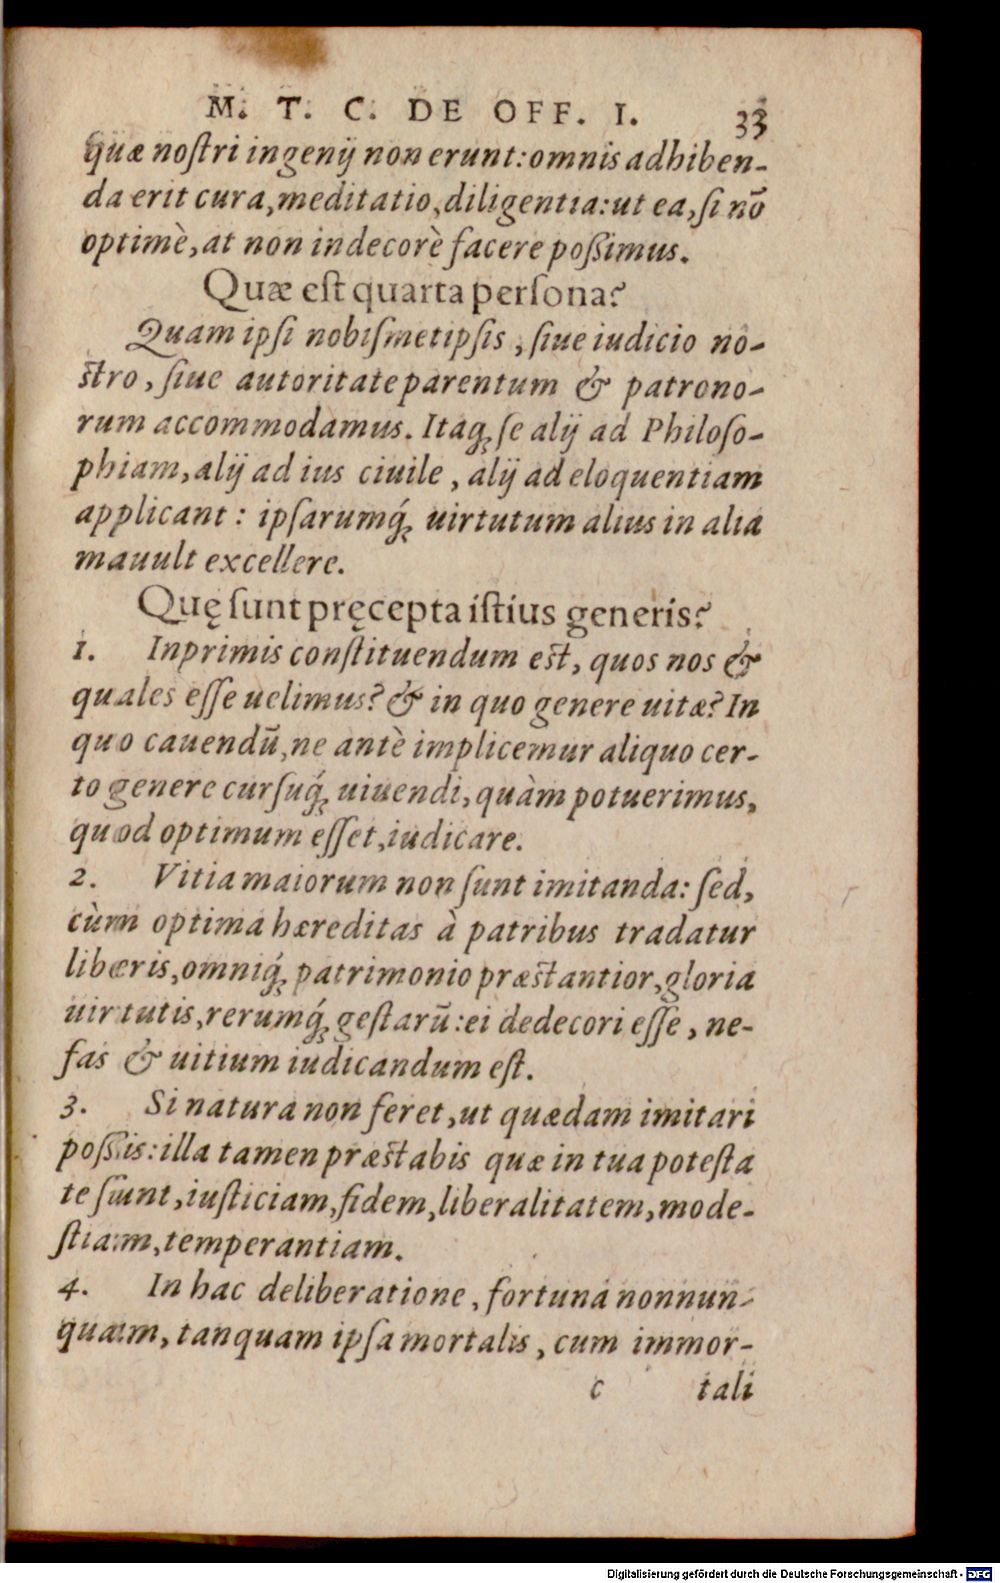 M. T. C. DE OFF. I. 33
quæ noſtri ingenij non erunt: omnis adhiben-
da erit cura, meditatio, diligentia: ut ea, ſi nō
optimè, at non indecorè facere poſsimus.
Quæ eſt quarta perſona?
Quam ipſi nobiſmetipſis, ſiue iudicio no-
ſtro, ſiue autoritate parentum & patrono-
rum accommodamus. Itaq; ſe alij ad Philoſo-
phiam, alij ad ius ciuile, alij ad eloquentiam
applicant: ipſarumq́; uirtutum alius in alia
mauult excellere.
Quę ſunt pręcepta iſtius generis?
1. Inprimis conſtituendum eſt, quos nos &
quales eſſe uelimus? & in quo genere uitæ? In
quo cauendū, ne antè implicemur aliquo cer-
to genere curſuq́; uiuendi, quàm potuerimus,
quod optimum eſſet, iudicare.
2. Vitia maiorum non ſunt imitanda: ſed,
cùm optima hæreditas à patribus tradatur
liberis, omniq́; patrimonio præſtantior, gloria
uirtutis, rerumq́; geſtarū: ei dedecori eſſe, ne-
fas & uitium iudicandum eſt.
3. Si natura non feret, ut quædam imitari
poſsis: illa tamen præſtabis quæ in tua poteſta
te ſunt, iuſticiam, fidem, liberalitatem, mode-
ſtiam, temperantiam.
4. In hac deliberatione, fortuna nonnun-
quam, tanquam ipſa mortalis, cum immor-
c tali
Digitalisierung gefördert durch die Deutsche Forschungsgemeinschaft - DFG